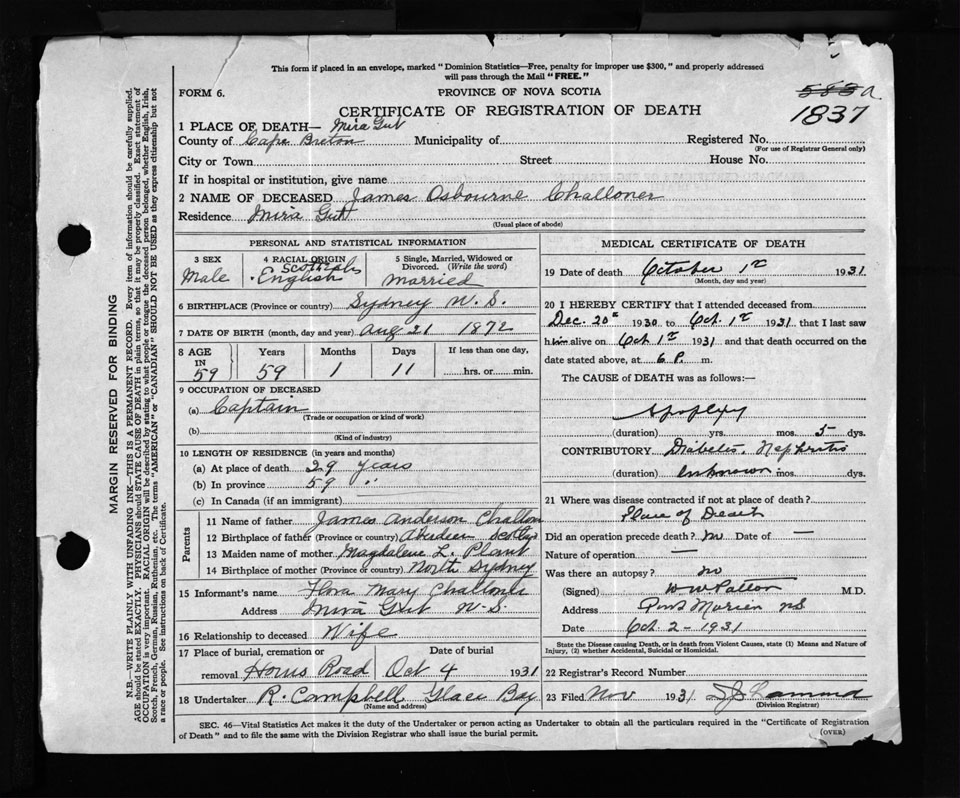 This form if placed in an envelope, marked "Dominion Statistics—Free, penalty for improper use $300," and properly addressed
will pass through the Mail "FREE."
FORM 6.
PROVINCE OF NOVA SCOTIA
588 a
1837
CERTIFICATE OF REGISTRATION OF DEATH
1 PLACE OF DEATH— Mira Gut
County of Cape Breton Municipality of Registered No.
(For use of Registrar General only)
City or Town Street House No.
If in hospital or institution, give name
2 NAME OF DECEASED James Osbourne Challoner
Residence Mira Gut
(Usual place of abode)
PERSONAL AND STATISTICAL INFORMATION
3 SEX
Male
4 RACIAL ORIGIN
Scotch
English
5 Single, Married, Widowed or
Divorced. (Write the word)
Married
6 BIRTHPLACE (Province or country) Sydney N.S.
7 DATE OF BIRTH (month, day and year) Aug 21 1872
8 AGE IN 59
Years 59
Months 1
Days 11
If less than one day,
hrs. or min.
9 OCCUPATION OF DECEASED
(a) Captain
(Trade or occupation or kind of work)
(b)
(Kind of industry)
10 LENGTH OF RESIDENCE (in years and months)
(a) At place of death 29 years
(b) In province 59 "
(c) In Canada (if an immigrant)
Parents
11 Name of father James Anderson Challon
12 Birthplace of father (Province or country) Aberdeen Scotland
13 Maiden name of mother Magdalene L. Plant
14 Birthplace of mother (Province or country) North Sydney
15 Informant's name Flora Mary Challoner
Address Mira Gut N.S
16 Relationship to deceased Wife
17 Place of burial, cremation or Date of burial
removal Horns Road Oct 4 1931
18 Undertaker R. Campbell Glace Bay
(Name and address)
MEDICAL CERTIFICATE OF DEATH
19 Date of death October 1st 1931
(Month, day and year)
20 I HEREBY CERTIFY that I attended deceased from
Dec. 20th 1930 to Oct. 1st 1931 that I last saw
him alive on Oct 1st 1931 and that death occurred on the
date stated above, at 6 P. m.
The CAUSE of DEATH was as follows:—
Apoplexy
(duration) yrs. mos. 5 dys.
CONTRIBUTORY Diabetes. Nephritis
(duration) Unknown mos. dys.
21 Where was disease contracted if not at place of death?
Place of Death
Did an operation precede death? No Date of —
Nature of operation —
Was there an autopsy? no
(Signed) W. W. Patton M.D.
Address Port Morien NS
Date Oct. 2 - 1931
State the Disease causing Death, or in death from Violent Causes, state (1) Means and Nature of
Injury, (2) whether Accidental, Suicidal or Homicidal.
22 Registrar's Record Number
23 Filed Nov 1931
(Division Registrar)
SEC. 46—Vital Statistics Act makes it the duty of the Undertaker or person acting as Undertaker to obtain all the particulars required in the "Certificate of Registration
of Death" and to file the same with the Division Registrar who shall issue the burial permit.
(OVER)
MARGIN RESERVED FOR BINDING
N.B.—WRITE PLAINLY WITH UNFADING INK—THIS IS A PERMANENT RECORD. Every item of information should be carefully supplied.
AGE should be stated EXACTLY. PHYSICIANS should STATE CAUSE OF DEATH in plain terms, so that it may be properly classified. Exact statement of
OCCUPATION is very important. RACIAL ORIGIN will be described by stating to what people or tongue the deceased person belonged, whether English, Irish,
Scotch, French, German, Russian, Ruthenian, etc. The terms "AMERICAN" or "CANADIAN" SHOULD NOT BE USED as they express citizenship but not
a race or people. See instructions on back of Certificate.